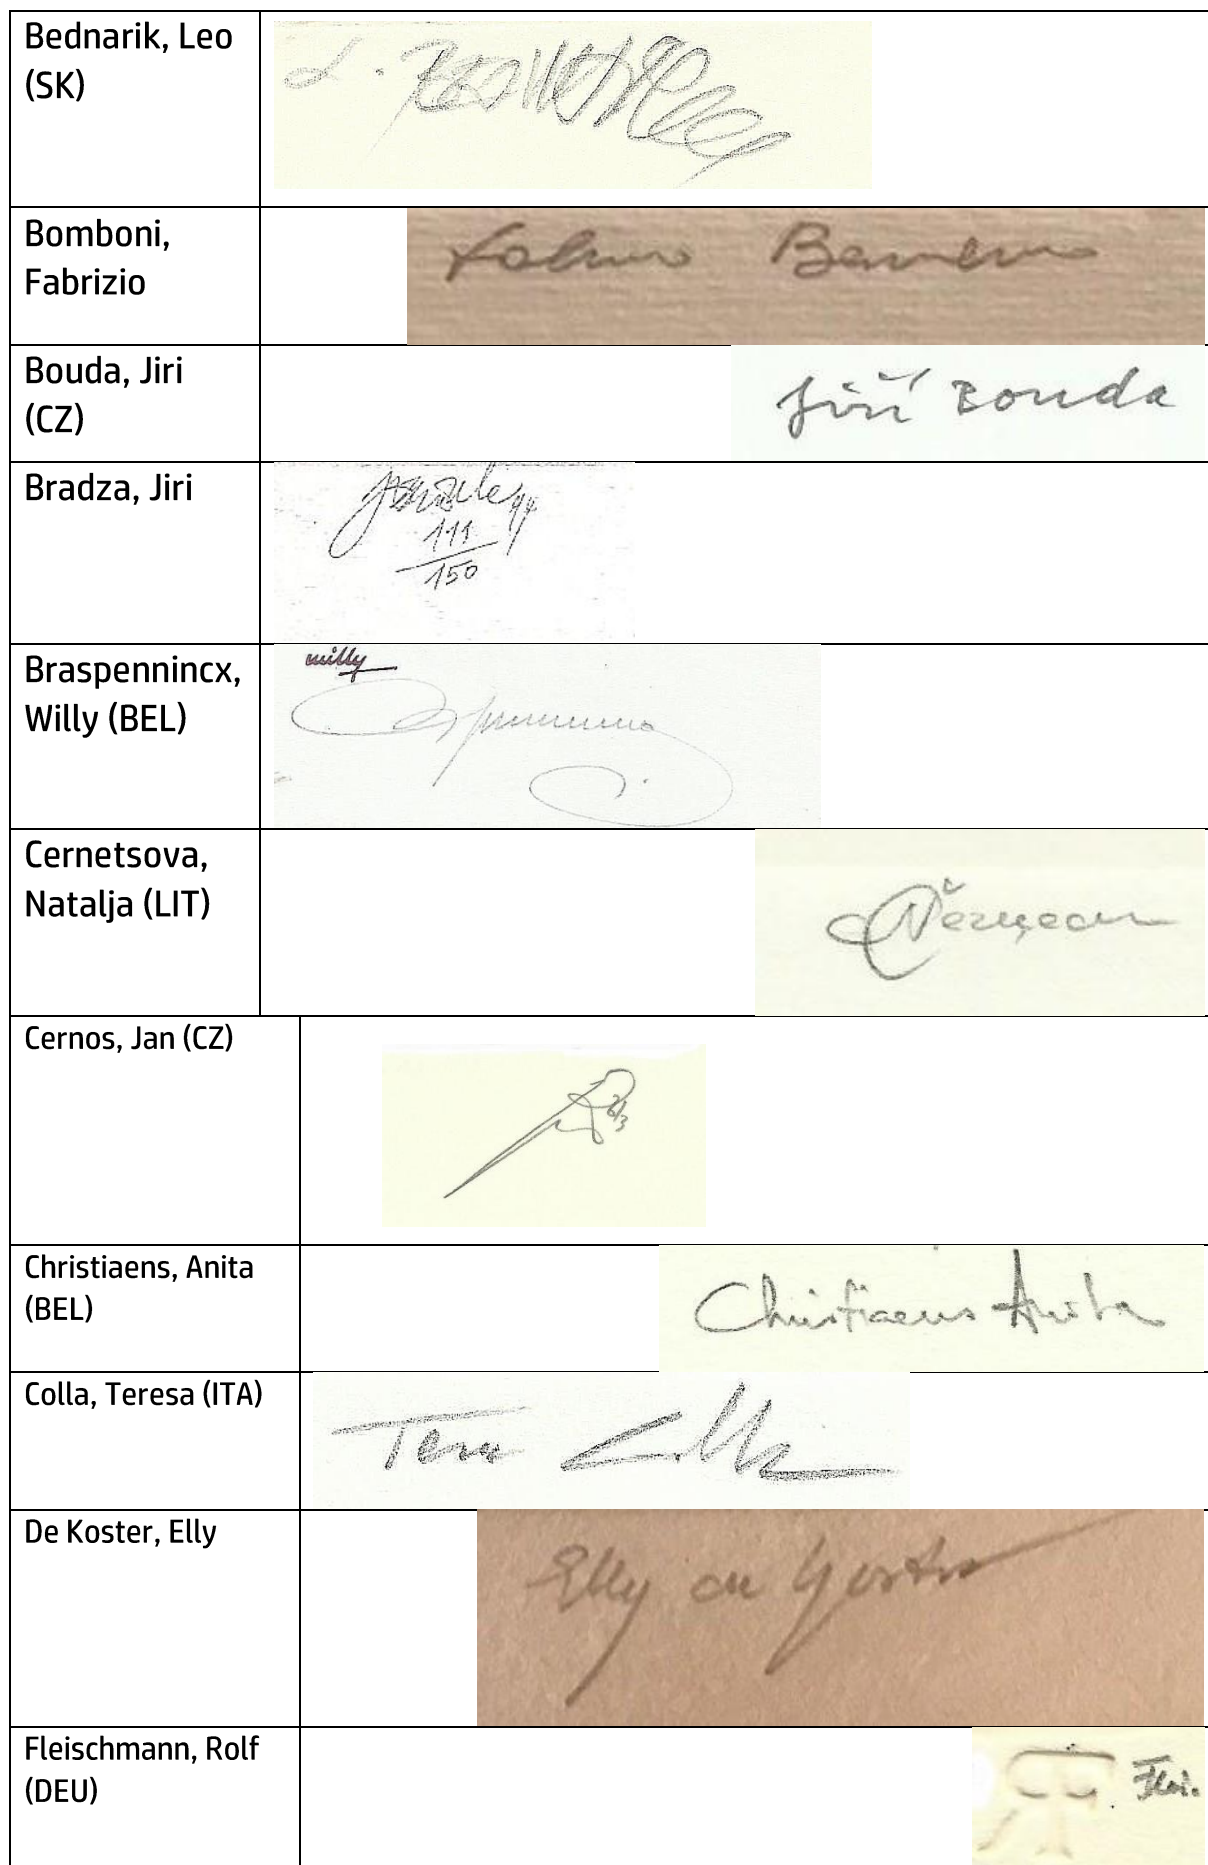 Bednarik, Leo
(SK)
L.
Bomboni,
Fabrizio
Bouda, Jiri
(CZ)
Jiří Bouda
Bradza, Jiri
94
111
150
Braspennincx,
Willy (BEL)
willy
Cernetsova,
Natalja (LIT)
Cernos, Jan (CZ)
Christiaens, Anita
(BEL)
Christiaens Anita
Colla, Teresa (ITA)
De Koster, Elly
Elly de Koster
Fleischmann, Rolf
(DEU)